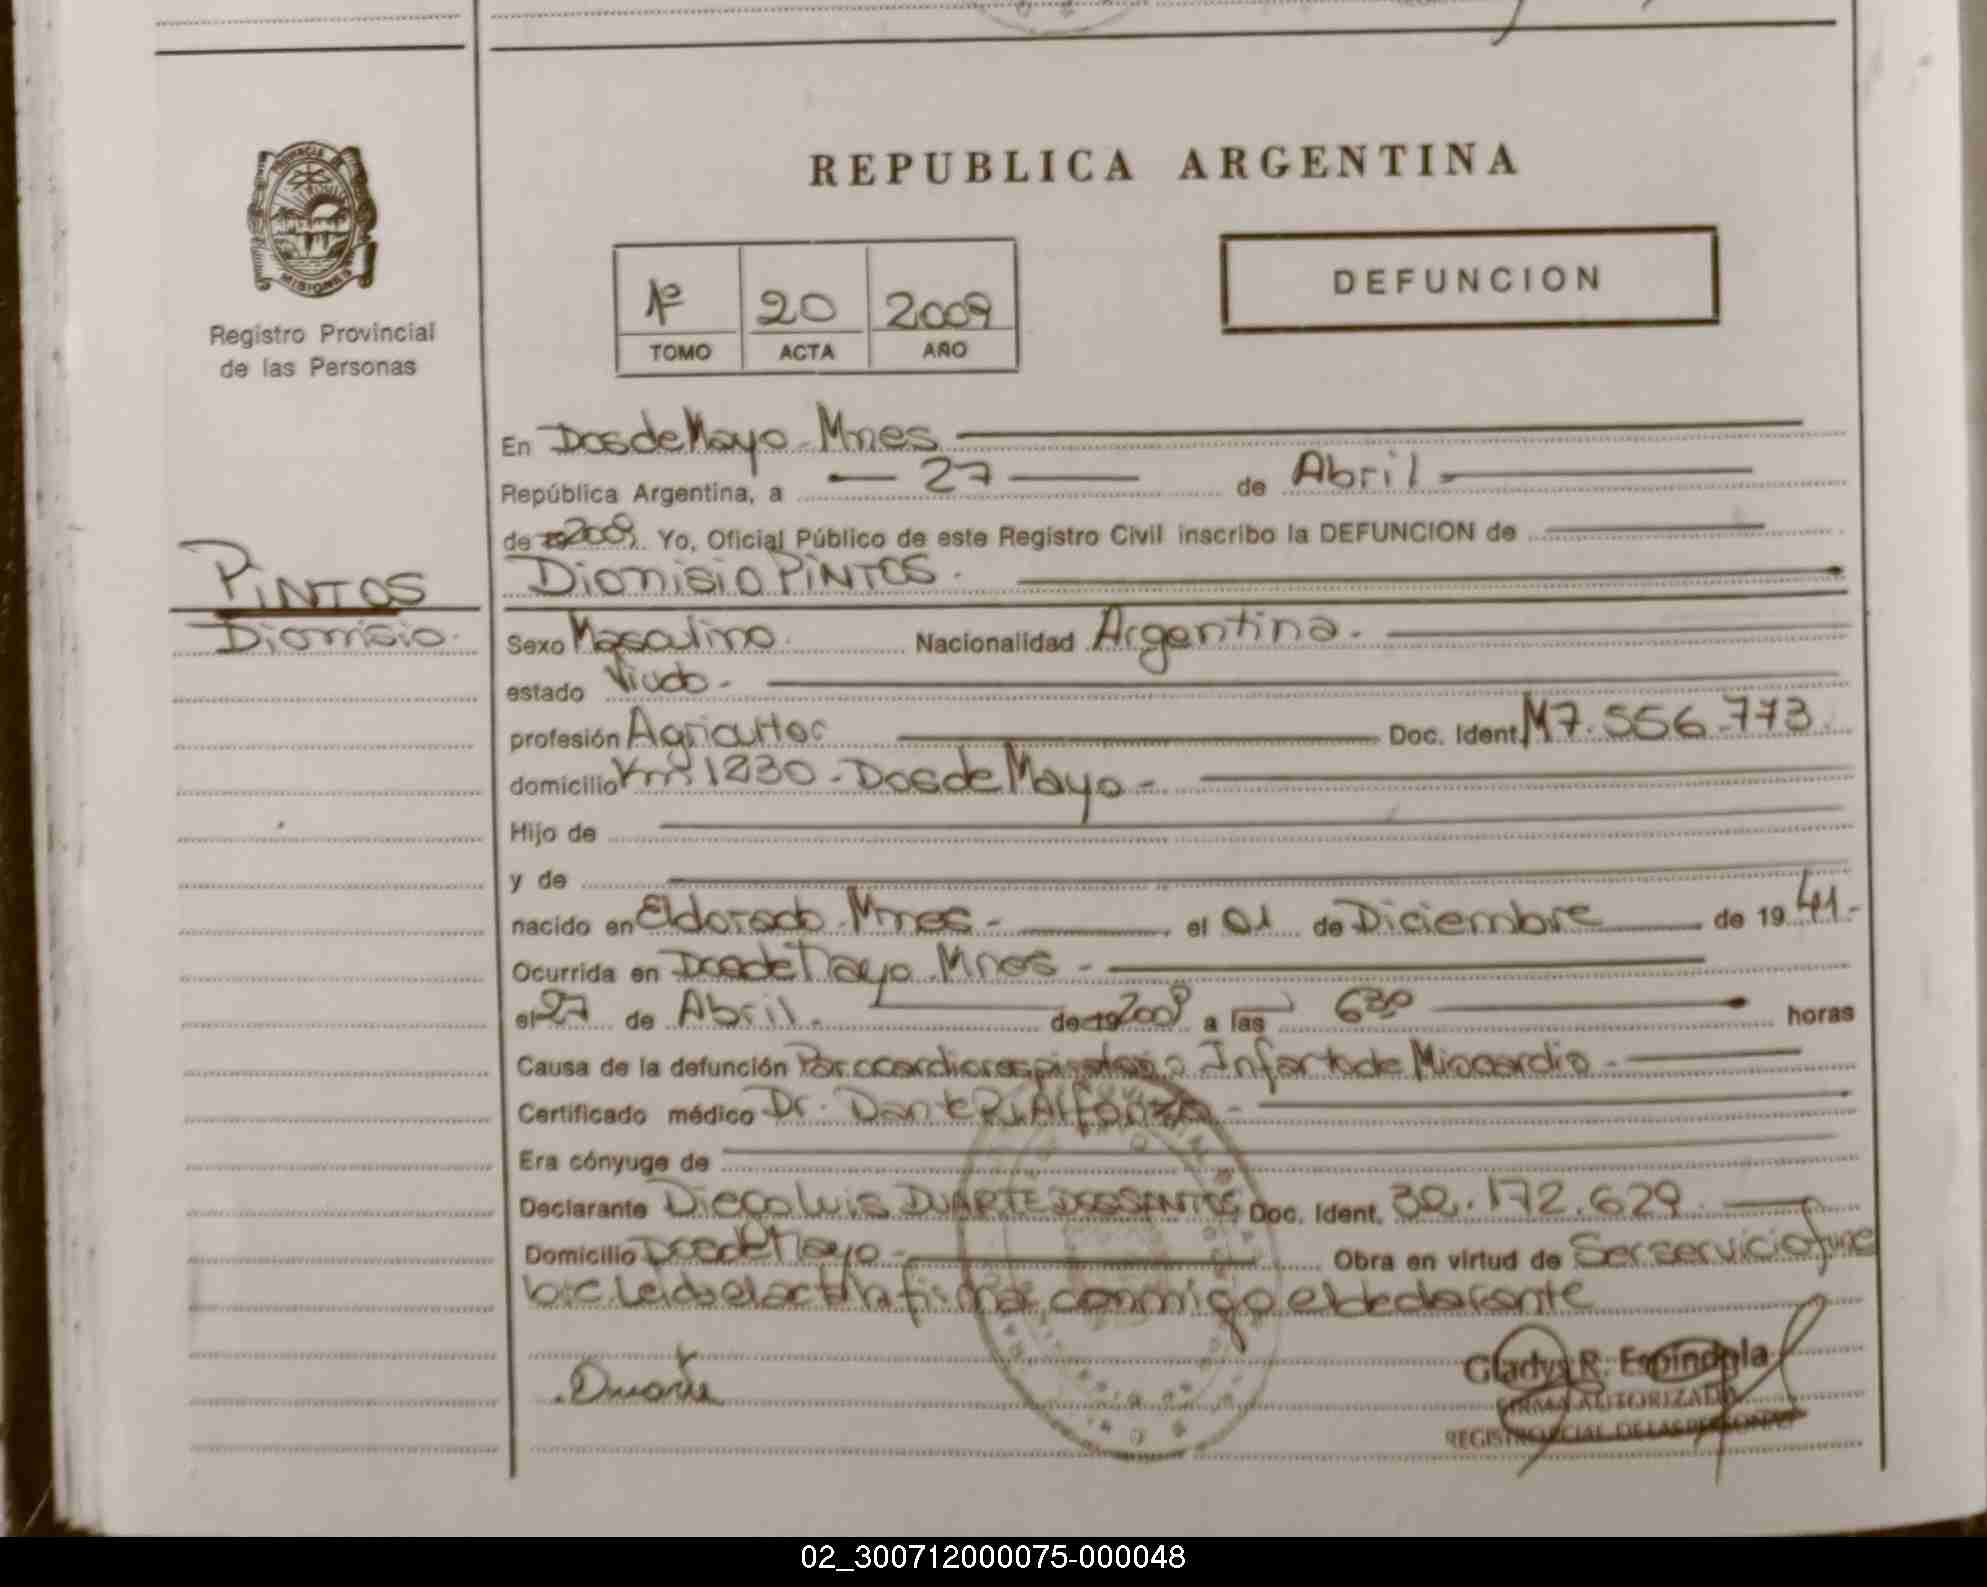 PROVINCIA DE
MISIONES
Registro Provincial
de las Personas
REPUBLICA ARGENTINA
1º 20 2009
TOMO ACTA AÑO
DEFUNCION
En Dos de Mayo - Mnes
República Argentina, a 27 de Abril
de 2009 Yo, Oficial Público de este Registro Civil inscribo la DEFUNCION de
PINTOS
Dionisio PINTOS.
Dionisio.
Sexo Masculino. Nacionalidad Argentina.
estado Viudo.
profesión Agricultor Doc. Ident. M7.556.773
domicilio Km 1230 - Dos de Mayo -
Hijo de
y de
nacido en Eldorado - Mnes - el 01 de Diciembre de 1941.-
Ocurrida en Dos de Mayo - Mnes -
el 27 de Abril. de 19 2009 a las 6 30 horas
Causa de la defunción Infarto de Miocardio -
Certificado médico Dr. Dante R. Alfonzo -
Era cónyuge de
Declarante Diego Luis DUARTE DOS SANTOS Doc. Ident. 32.172.629.
Domicilio Dos de Mayo - Obra en virtud de Ser servicio fune
bre Leida el acta la firma conmigo el declarante
Duarte
Gladys R. Espindola
FIRMA AUTORIZADA
REGISTRO PCIAL. DE LAS PERSONAS
02_300712000075-000048